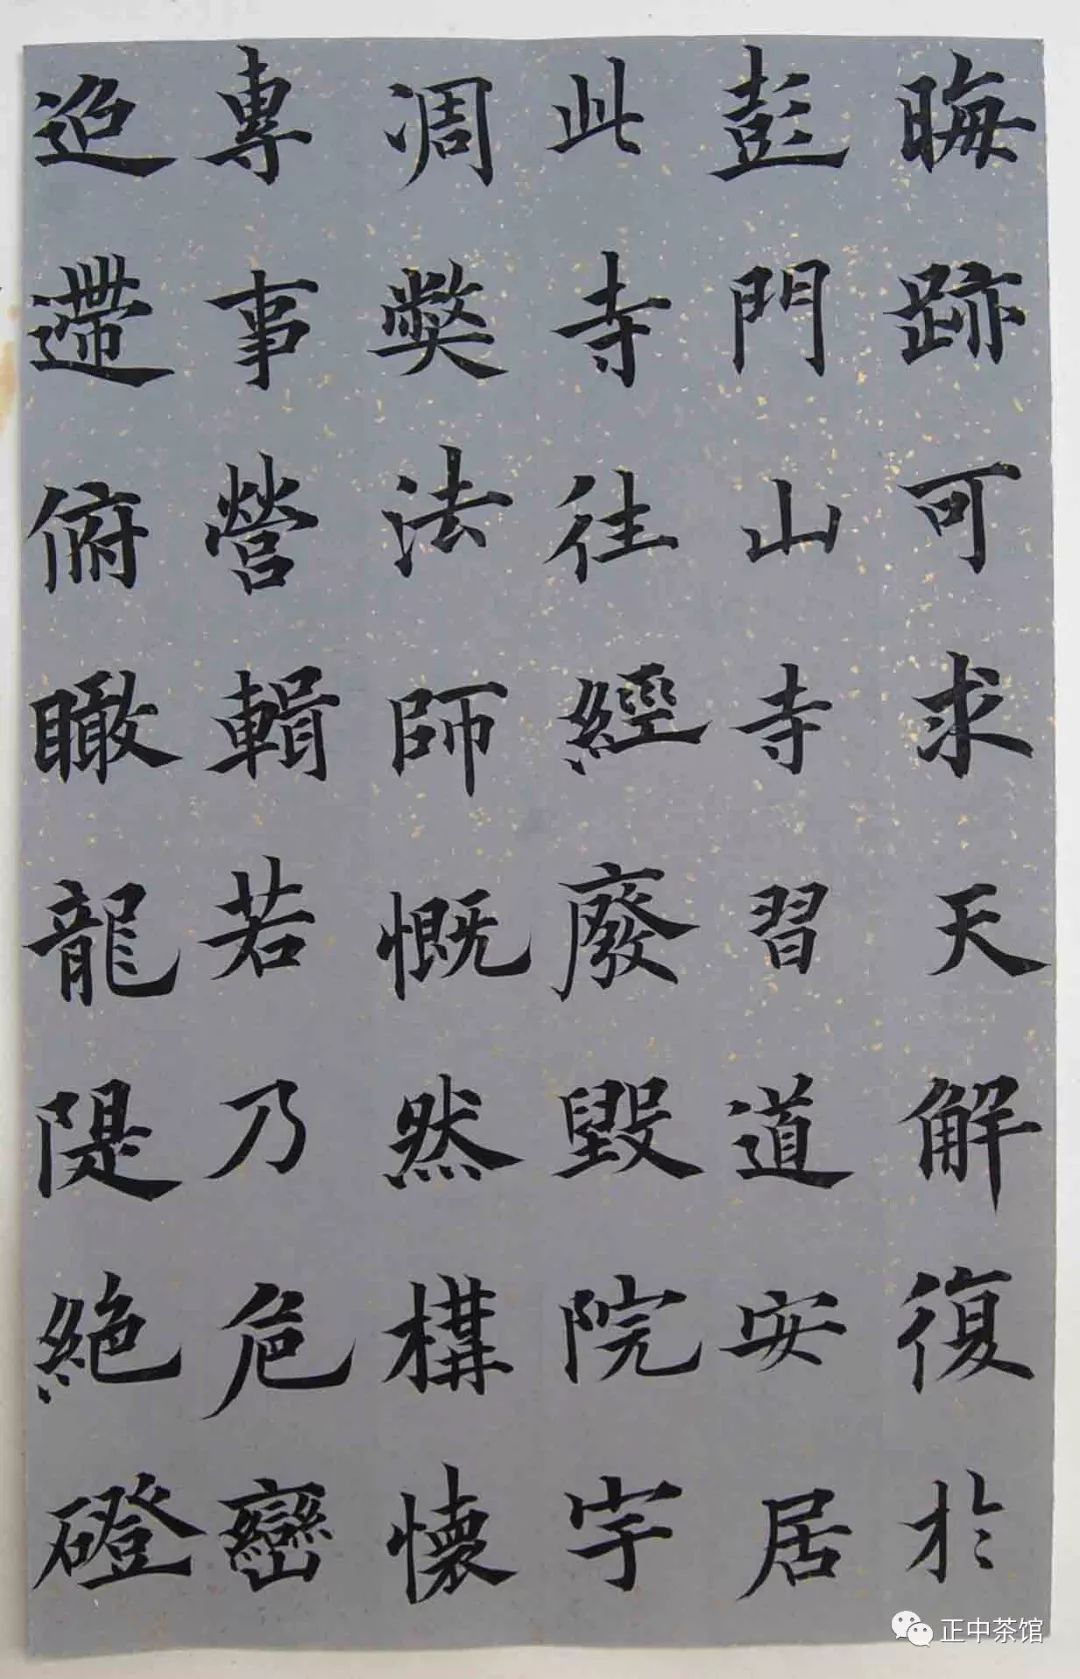 晦跡可求天解復於
彭門山寺習道安居
此寺往經廢毀院宇
凋弊法師慨然構懷
專事營輯若乃危巒
迢遰俯瞰龍隄絕磴
正中茶馆